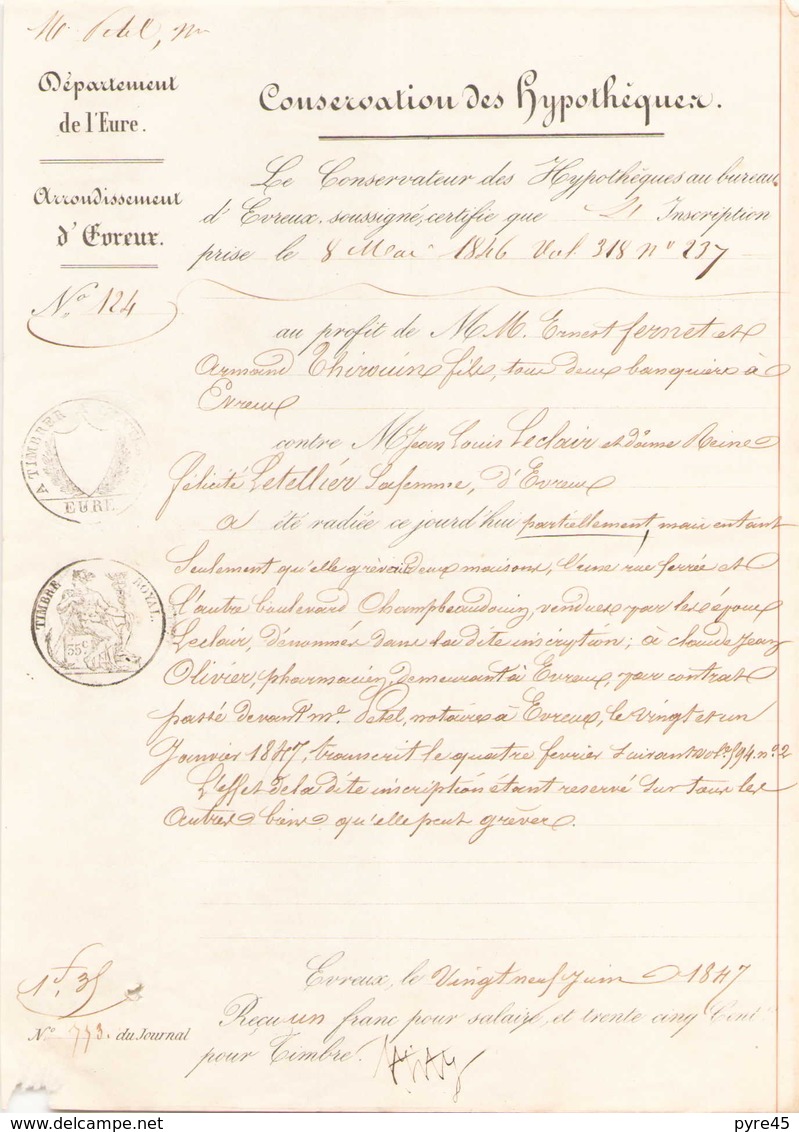 Me Petel, nre
Département
de l'Eure.
Arrondissement
d'Evreux.
No. 124
Conservation des Hypothèques.
Le Conservateur des Hypothèques au bureau
d'Evreux soussigné, certifie que L'Inscription
prise le 8 Mai 1846 Vol. 318 no 237
au profit de M M. Ernest fernet et
Armand Thirouin fils, tous deux banquiers à
Evreux
contre M Jean Louis Leclair et dâme Reine
félicité Letellier sa femme, d'Evreux
a été radiée ce jourd'hui partiellement, mais en tant
Seulement qu'elle grève deux maisons, l'une rue ferrée et
l'autre boulevard Chambeaudouin, vendues par les époux
Leclair, dénommés dans la dite inscription; à claude Jean
Olivier, pharmacien, demeurant à Evreux, par contrat
passé devant me. Petel, notaire à Evreux, le vingt et un
Janvier 1847, transcrit le quatre fevrier suivant vol. 594. no. 2
L'effet de la dite inscription étant reservé sur tous les
Autres biens qu'elle peut grèver.
A TIMBRER
EURE
TIMBRE ROYAL.
35c
1f. 35
No 773. du Journal
Evreux, le Vingt neuf Juin 1847
Reçu un franc pour salaire, et trente cinq Cent.
pour Timbre.
pyre45